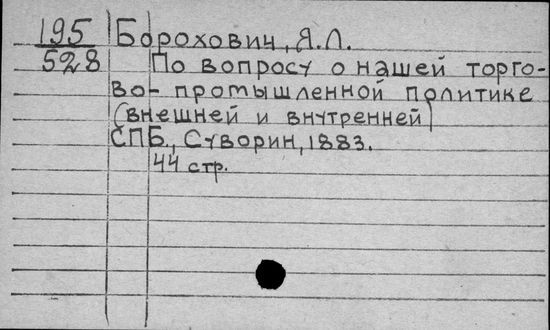 195 Борохович, Я.Л.
528 По вопросу о нашей торго-
во-промышленной политике
(внешней и внутренней)
СПБ., Суворин, 1883.
44 стр.